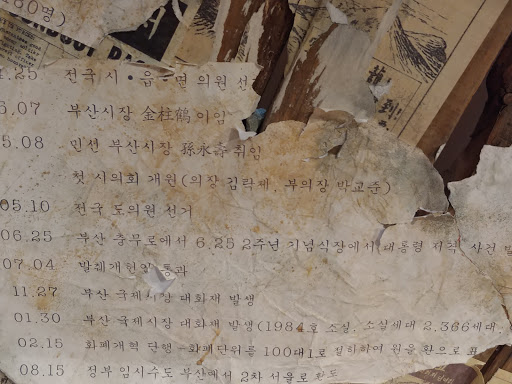 180명)
.25 전국 시·읍·면 의원 선거
6.07 부산시장 金柱鶴 이임
5.08 민선 부산시장 孫永壽 취임
첫 시의회 개원(의장 김락제, 부의장 박교준)
05.10 전국 도의원 선거
06.25 부산 충무로에서 6.25 2주년 기념식장에서 대통령 저격 사건 발
07.04 발췌개헌안 통과
11.27 부산 국제시장 대화재 발생
01.30 부산 국제시장 대화재 발생(1984호 소실, 소실세대 2,366세대,
02.15 화폐개혁 단행-화폐단위를 100대1로 절하하여 원을 환으로 표
08.15 정부 임시수도 부산에서 2차 서울로 환도